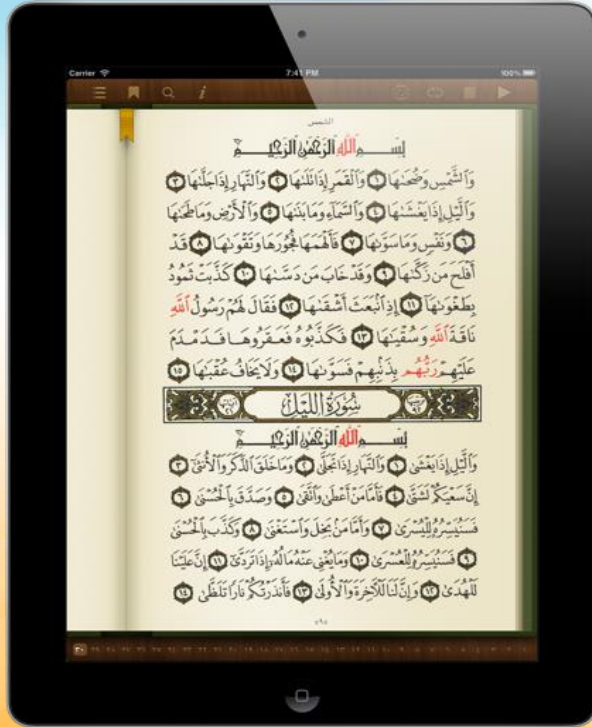 Carrier 7:41 PM 100%
الشمس
بِسْمِ ٱللَّهِ ٱلرَّحْمَٰنِ ٱلرَّحِيمِ
وَٱلشَّمْسِ وَضُحَىٰهَا ١ وَٱلْقَمَرِ إِذَا تَلَىٰهَا ٢ وَٱلنَّهَارِ إِذَا جَلَّىٰهَا ٣
وَٱلَّيْلِ إِذَا يَغْشَىٰهَا ٤ وَٱلسَّمَآءِ وَمَا بَنَىٰهَا ٥ وَٱلْأَرْضِ وَمَا طَحَىٰهَا
٦ وَنَفْسٍ وَمَا سَوَّىٰهَا ٧ فَأَلْهَمَهَا فُجُورَهَا وَتَقْوَىٰهَا ٨ قَدْ
أَفْلَحَ مَن زَكَّىٰهَا ٩ وَقَدْ خَابَ مَن دَسَّىٰهَا ١٠ كَذَّبَتْ ثَمُودُ
بِطَغْوَىٰهَآ ١١ إِذِ ٱنۢبَعَثَ أَشْقَىٰهَا ١٢ فَقَالَ لَهُمْ رَسُولُ ٱللَّهِ
نَاقَةَ ٱللَّهِ وَسُقْيَٰهَا ١٣ فَكَذَّبُوهُ فَعَقَرُوهَا فَدَمْدَمَ
عَلَيْهِمْ رَبُّهُم بِذَنۢبِهِمْ فَسَوَّىٰهَا ١٤ وَلَا يَخَافُ عُقْبَٰهَا ١٥
سُورَةُ اللَّيْلِ
بِسْمِ ٱللَّهِ ٱلرَّحْمَٰنِ ٱلرَّحِيمِ
وَٱلَّيْلِ إِذَا يَغْشَىٰ ١ وَٱلنَّهَارِ إِذَا تَجَلَّىٰ ٢ وَمَا خَلَقَ ٱلذَّكَرَ وَٱلْأُنثَىٰٓ ٣
إِنَّ سَعْيَكُمْ لَشَتَّىٰ ٤ فَأَمَّا مَنْ أَعْطَىٰ وَٱتَّقَىٰ ٥ وَصَدَّقَ بِٱلْحُسْنَىٰ ٦
فَسَنُيَسِّرُهُۥ لِلْيُسْرَىٰ ٧ وَأَمَّا مَنۢ بَخِلَ وَٱسْتَغْنَىٰ ٨ وَكَذَّبَ بِٱلْحُسْنَىٰ
٩ فَسَنُيَسِّرُهُۥ لِلْعُسْرَىٰ ١٠ وَمَا يُغْنِى عَنْهُ مَالُهُۥٓ إِذَا تَرَدَّىٰٓ ١١ إِنَّ عَلَيْنَا
لَلْهُدَىٰ ١٢ وَإِنَّ لَنَا لَلْـَٔاخِرَةَ وَٱلْأُولَىٰ ١٣ فَأَنذَرْتُكُمْ نَارًا تَلَظَّىٰ ١٤
٥٩٥